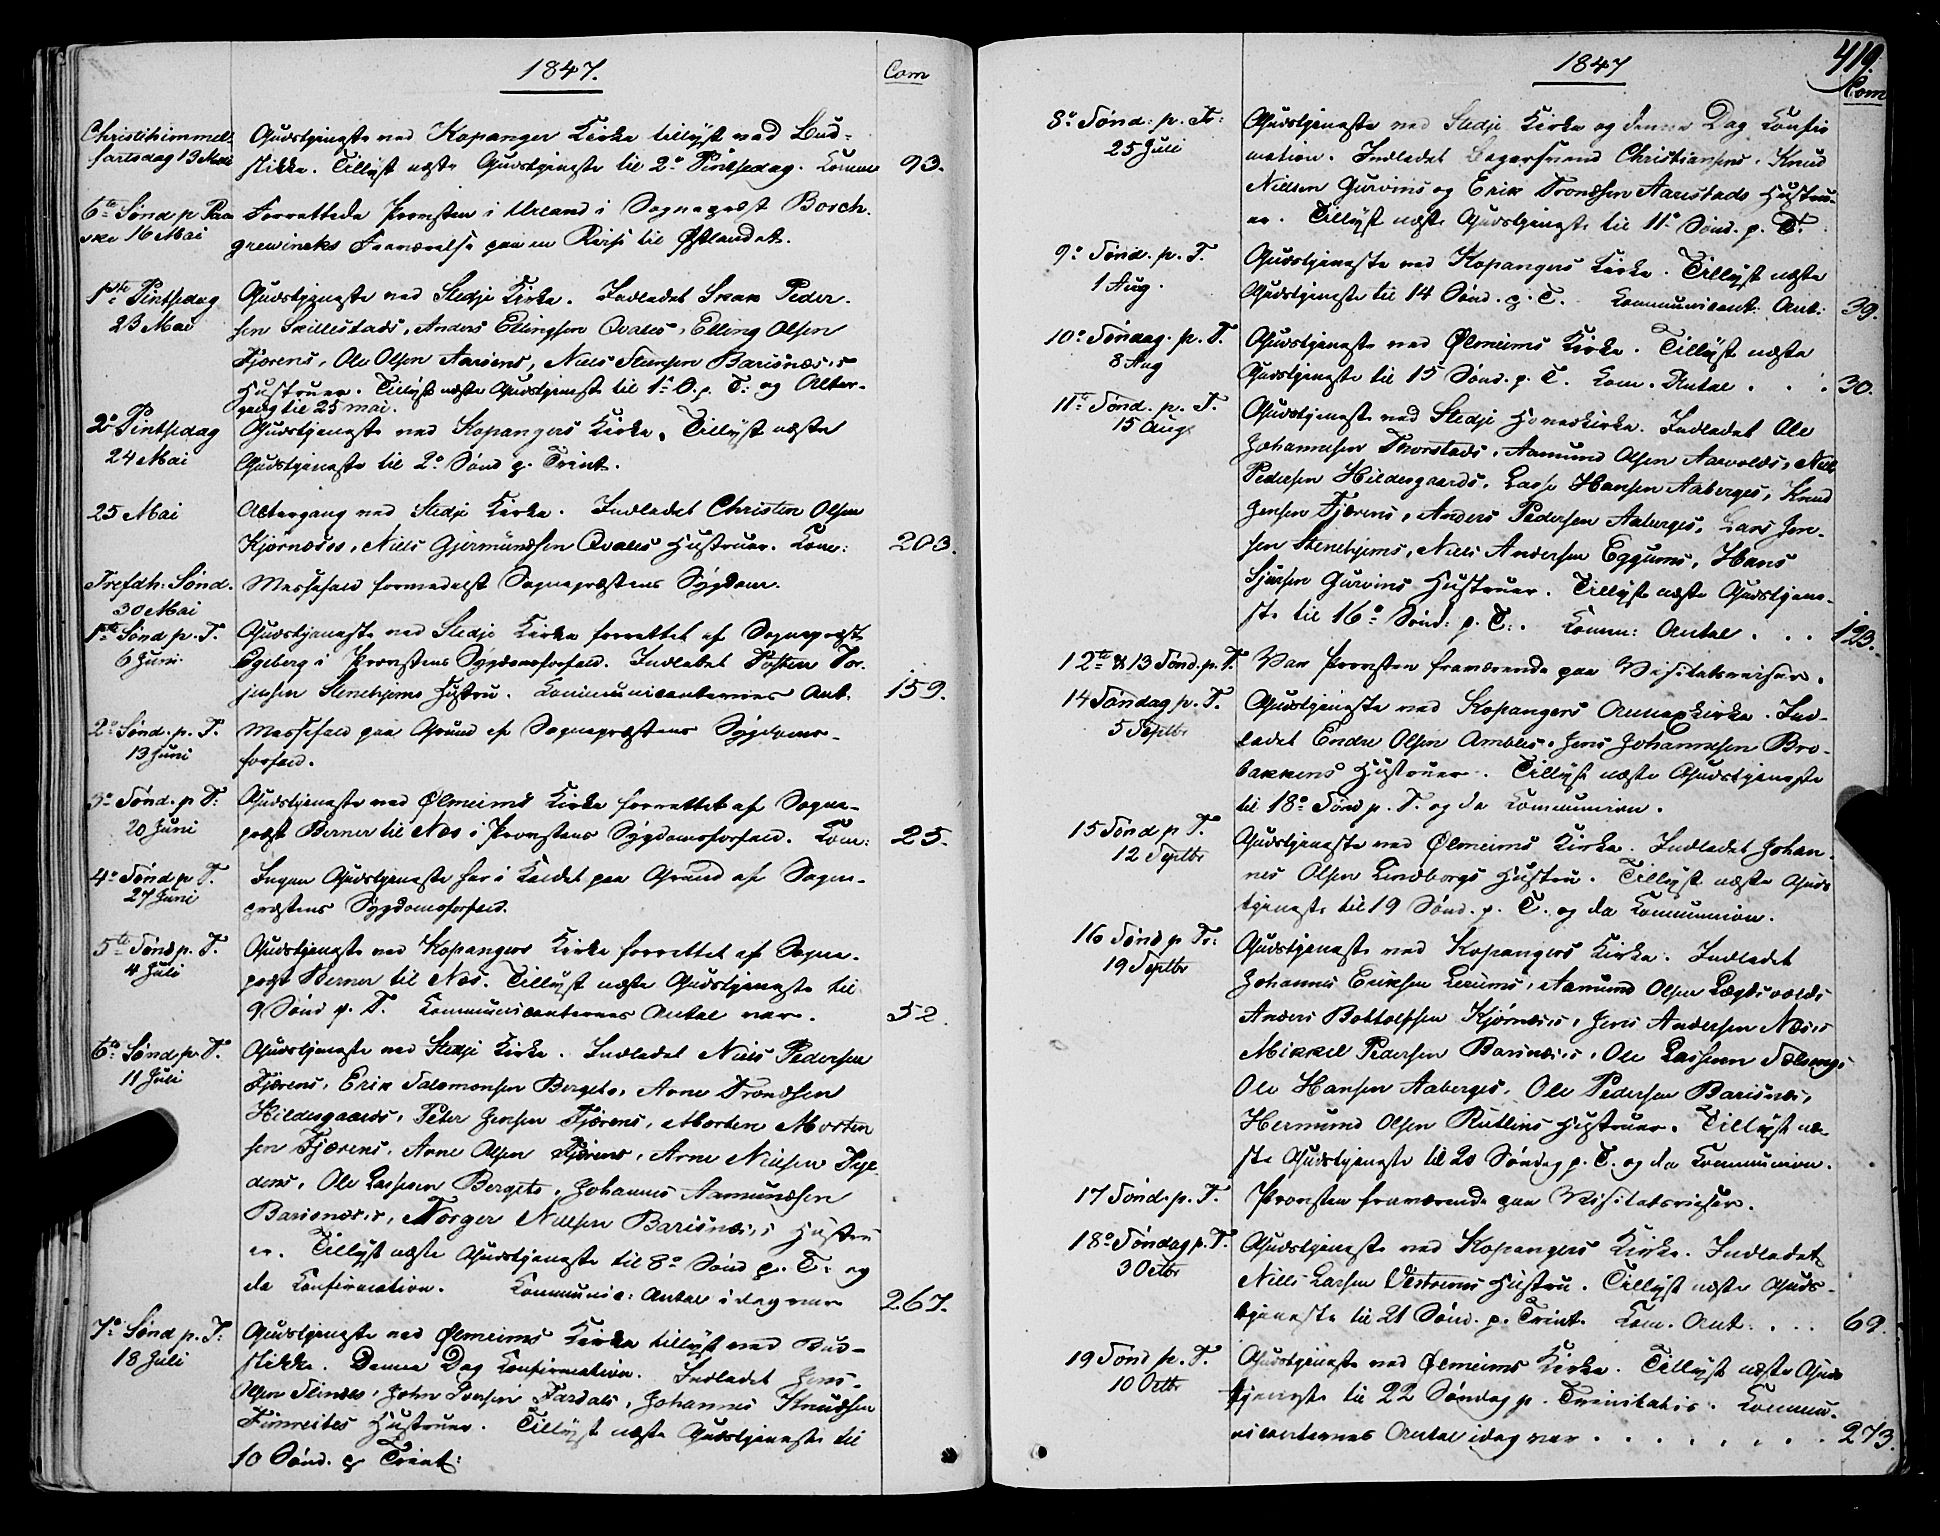 1847.
Com
Christihimmel- Gudstjeneste ved Kopanger Kirke tillyst ved Bud-
fartsdag 13 Mai stikke. Tillyst næste Gudstjeneste til 2den Pintsedag. Komm 93.
6te Sønd p Paa Forrettede Provsten i Urland i Sognepræst Borch-
ske 16 Mai grewincks Fraværelse paa en Reise til Østlandet.
1ste Pintsedag Gudstjeneste ved Stedje Kirke. Indledet Peder-
23 Mai sen Skillestads, Anders Ellingsen Qvales, Elling Olsen
Fjærens, Ole Olsen Aarøens, Niels Steensen Barisnæs's
Hustruer. Tillyst næste Gudstjeneste til 1ste S. p. T: og Alter-
gang til 25 mai.
2den Pintsedag Gudstjeneste ved Kopangers Kirke. Tillyst næste
24 Mai Gudstjeneste til 2den Sønd p. Trint.
25 Mai Altergang ved Stedje Kirke. Indledet Christen Olsen
Kjørnæses, Niels Gjermundsen Qvales Hustruer. Kom: 203.
Trefdh: Sønd. Messefald formedelst Sognepræstens Sygdom.
30 Mai
1ste Sønd p. T. Gudstjeneste ved Stedje Kirke forrettet af Sognepræst
6 Juni Egeberg i Provstens Sygdomsforfald. Indledet Tosten Tor-
jensen Stenehjems Hustru. Kommunicanternes Ant. 159.
2den Sønd. p. T. Messefald paa Grund af Sognepræstens Sygdoms-
13 Juni forfald.
3die Sønd. p T: Gudstjeneste ved Ølmeims Kirke forrettet af Sogne-
20 Juni præst Berner til Næs i Provstens Sygdomsforfald. Kom: 25.
4de Sønd p T. Ingen Gudstjeneste her i Kaldet paa Grund af Sogne-
27 Juni præstens Sygdomsforfald.
5te Sønd p. T. Gudstjeneste ved Kopangers Kirke forrettet af Sogne-
4 Juli præst Berner til Næs. Tillyst næste Gudstjeneste til
9 Sønd p. T. Kommunicanternes Antal var. 52.
6te Sønd. p. T. Gudstjeneste ved Stedje Kirke. Indledet Niels Pedersen
11 Juli Fjærens, Erik Salomonsen Bergets, Arne Trondsen
Hildesgaards, Peter Jensen Fjærens, Morten Morten
sen Fjærens, Arne Olsen Fjærens, Arne Nielsen
Ole Lassesen Bergets, Johannes Aamundsen
Barisnæs's, Torger Nielsen Barisnæs's Hustru
er. Tillyst næste Gudstjeneste til 8de Sønd p. T. og
da Konfirmation. Kommunic: Antal i dag var 267.
7de Sønd p. T: Gudstjeneste ved Ølmeims Kirke tillyst ved Bud-
18 Juli stikke. Denne Dag Konfirmation. Indledet Jens
Olsen Slindes, John Iversen Fardals, Johannes Knudsen
Fimreites Hustruer. Tillyst næste Gudstjeneste til
10 Sønd. p Trint:
1847
419.
Com
8de Sønd: p. Tr: Gudstjeneste ved Stedje Kirke og denne Dag Konfir
25 Juli mation. Indledet Christiansens, Knud
Nielsen Gurvins og Erik Trondsen Aarestads Hustru-
er. Tillyst næste Gudstjeneste til 11te Sønd. p. T.
9de Sønd. p. T. Gudstjeneste ved Kopangers Kirke. Tillyst næste
1 Aug. Gudstjeneste til 14 Sønd. p. T. Kommunicant: Ant: 39.
10de Søndag. p. T. Gudstjeneste ved Ølmeims Kirke. Tillyst næste
8 Aug Gudstjeneste til 15 Sønd. p. T. Kom. Antal . . . 30.
11te Sønd. p. T. Gudstjeneste ved Stedje Hovedkirke. Indledet Ole
15 Aug. Johannesen Thorstads, Aamund Olsen Aarvolds, Niels
Pedersen Hildesgaards, Lasse Hansen Aaberges, Knud
Jensen Fjærens, Anders Pedersen Aaberges, Lars Jen-
sen Stenehjems, Niels Andersen Eggums, Hans
Sjursen Gurvins Hustruer. Tillyst næste Gudstjene-
ste til 16de Sønd: p. T:. Komm: Antal . . . 123.
12te & 13 Sønd. p. T. Var Provsten fraværende paa Visitatsreiser.
14 Søndag p. T. Gudstjeneste ved Kopangers Annexkirke. Ind-
5 Septbr ledet Endre Olsen Ambles, Jens Johannesen Bro-
bakkens Hustruer. Tillyst næste Gudstjeneste
til 18de Sønd p. T. og da Communion.
15 Sønd p T. Gudstjeneste ved Ølmeims Kirke. Indledet Johan-
12 Septbr nes Olsen Lindborgs Hustru. Tillyst næste Guds
tjeneste til 19 Sønd. p. T. og da Kommunion.
16 Sønd p Tr: Gudstjeneste ved Kopangers Kirke. Indledet
19 Septbr Johannes Eriksen Lerums, Aamund Olsen Lægdsvolds
Anders Bottolfsen Kjørnæs's, Jens Andersen Næs's
Mikkel Pedersen Barisnæs's, Ole Lassesen
Ole Hansen Aaberges, Ole Pedersen Barisnæs,
Hermund Olsen Rutlins Hustruer. Tillyst næ-
ste Gudstjeneste til 20 Søndag p. T. og da Communion.
17 Sønd. p. T. Provsten fraværende paa Visitatsreiser.
18de Søndag p. T. Gudstjeneste ved Kopangers Kirke. Indledet
3 Octbr Niels Larsen Vestrems Hustru. Tillyst næste Guds-
tjeneste til 21 Sønd. p. Trint. Kom. Ant: . . . 69.
19 Sønd p. T. Gudstjeneste ved Ølmeims Kirke. Tillyst næste Guds
10 Octbr tjeneste til 22 Søndag p. Trinitatis. Kommu-
nicanternes Antal idag var . . . . . . . 273.